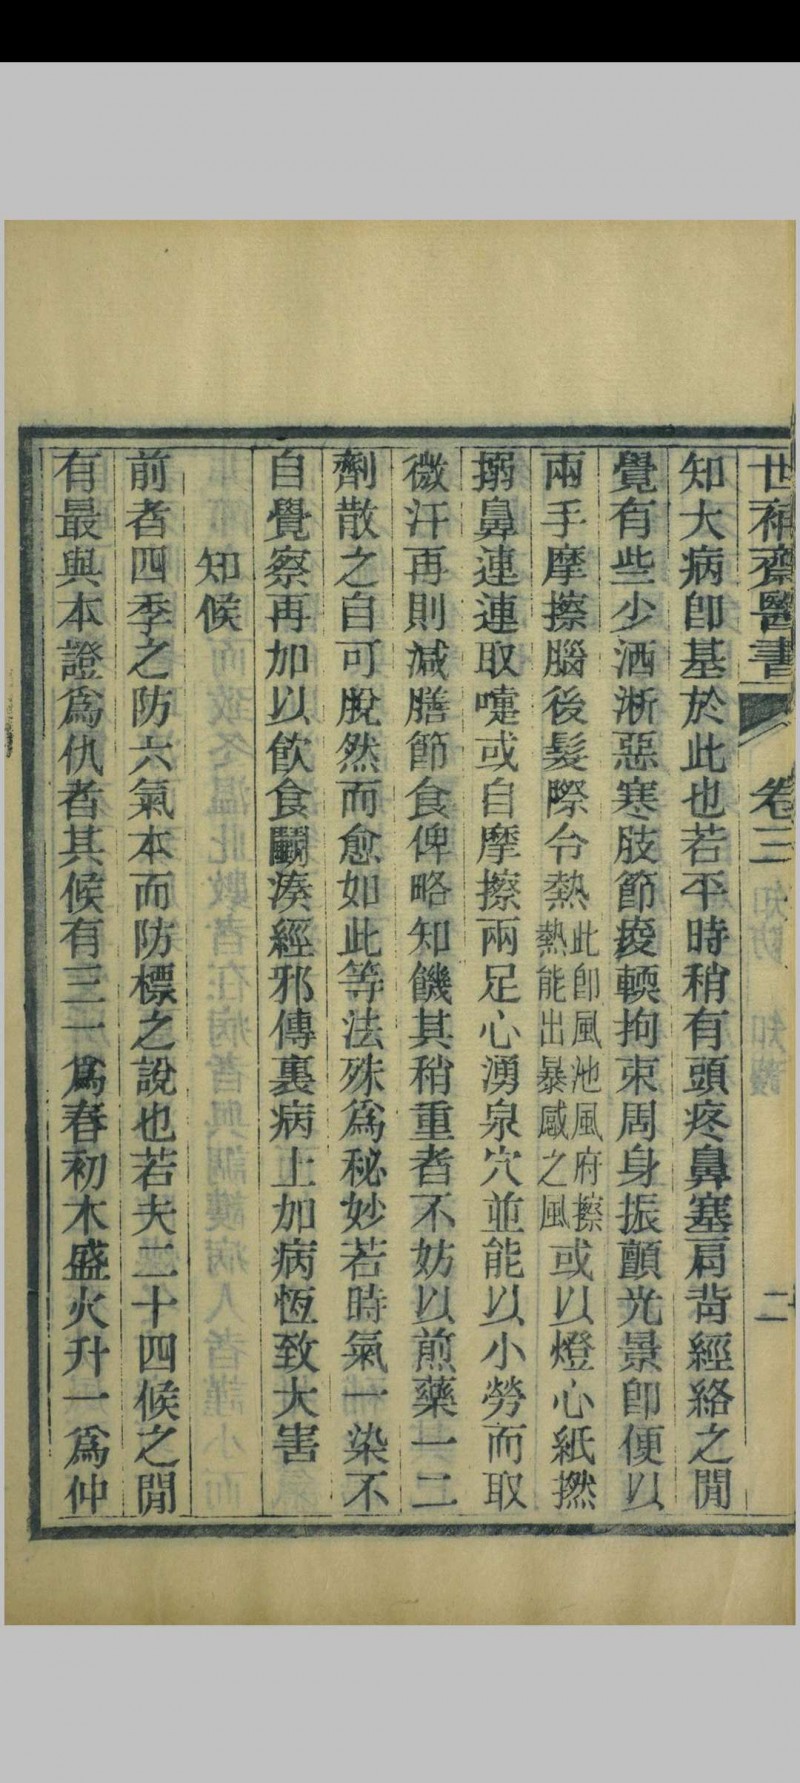 世補齋醫書 卷三 二
知大病卽基於此也若平時稍有頭疼鼻塞肩背經絡之閒
覺有些少洒淅惡寒肢節痠輭拘束周身振顫光景卽便以
兩手摩擦腦後髮際令熱此卽風池風府擦熱能出暴感之風或以燈心紙撚
搦鼻連連取嚏或自摩擦兩足心湧泉穴並能以小勞而取
微汗再則減膳節食俾略知饑其稍重者不妨以煎藥一二
劑散之自可脫然而愈如此等法殊爲秘妙若時氣一染不
自覺察再加以飮食鬭湊經邪傳裏病上加病恆致大害
知候
前者四季之防六氣本而防標之說也若夫二十四候之閒
有最與本證爲仇者其候有三一爲春初木盛火升一爲仲